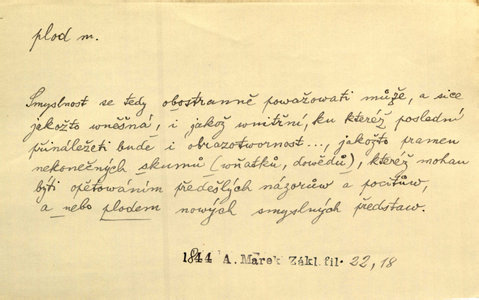 plod m.
Smyslnost se tedy obostranně považowati může, a sice
jakožto wněšná, i jakož wnitřní, ku kteréž poslední
přináležeti bude i obrazotwornost..., jakožto pramen
nekonečných skumů (wňatků, dowědů), kteréž mohau
býti opětowaním předešlých názorůw a pocitůw,
a nebo plodem nowých smyslných představ.
1844 A. Marek Zákl. fil. 22, 18